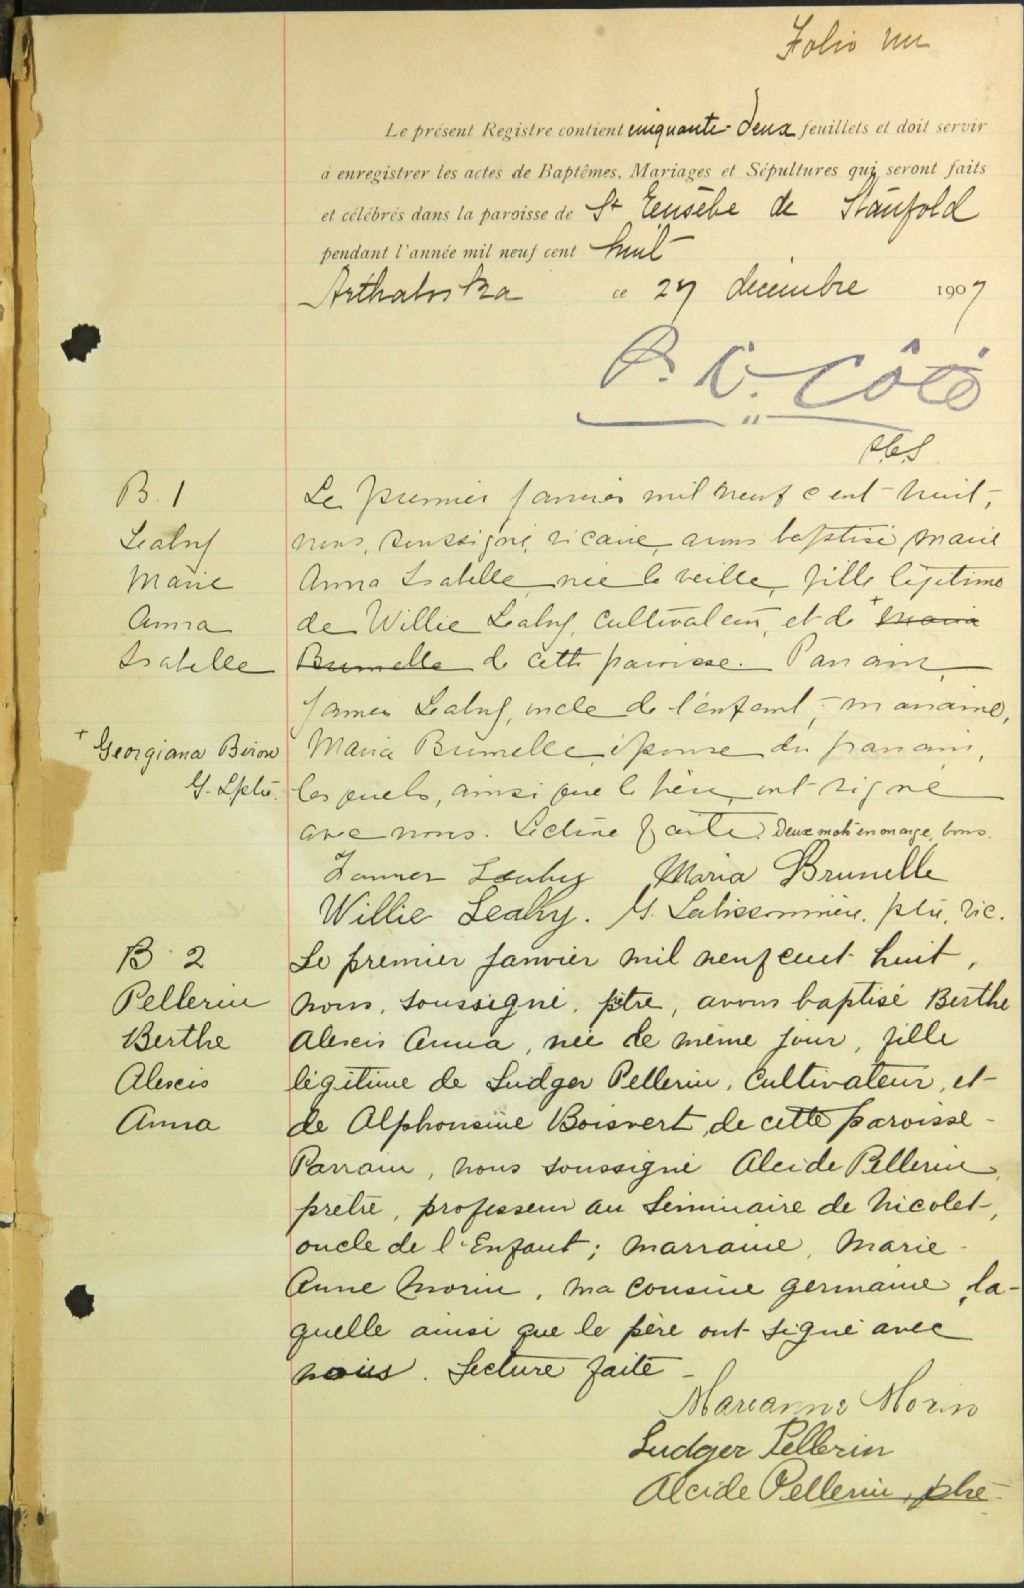 Folio un
Le présent Registre contient cinquante-deux feuillets et doit servir
à enregistrer les actes de Baptêmes, Mariages et Sépultures qui seront faits
et célébrés dans la paroisse de St Eusèbe de Stanfold
pendant l'année mil neuf cent huit
Arthabaska ce 27 décembre 1907
P. C. Côté
B. 1
Leahy
Marie
Anna
Isabelle
+ Georgiana Biron
G. L ptre.
Le premier janvier mil neuf cent huit,
nous, soussigné, vicaire, avons baptisé Marie
Anna Isabelle, née la veille, fille légitime
de Willie Leahy, cultivateur, et de + Maria
Brunelle de cette paroisse. Parrain,
James Leahy, oncle de l'enfant; marraine,
Maria Brunelle épouse du parrain,
lesquels, ainsi que le père, ont signé
avec nous. Lecture faite. Deux mots en marge, bons.
James Leahy Maria Brunelle
Willie Leahy. G. Lalissonnière, ptre, vic.
B 2
Pellerin
Berthe
Alexis
Anna
Le premier janvier mil neuf cent huit,
nous, soussigné, ptre, avons baptisé Berthe
Alexis Anna, née de même jour, fille
légitime de Ludger Pellerin, cultivateur, et
de Alphonsine Boisvert, de cette paroisse -
Parrain, nous soussigné Alcide Pellerin,
prêtre, professeur au Séminaire de Nicolet,
oncle de l'Enfant; marraine, Marie
Anne Morin, ma cousine germaine, la-
quelle ainsi que le père ont signé avec
nous. Lecture faite -
Marianne Morin
Ludger Pellerin
Alcide Pellerin, ptre